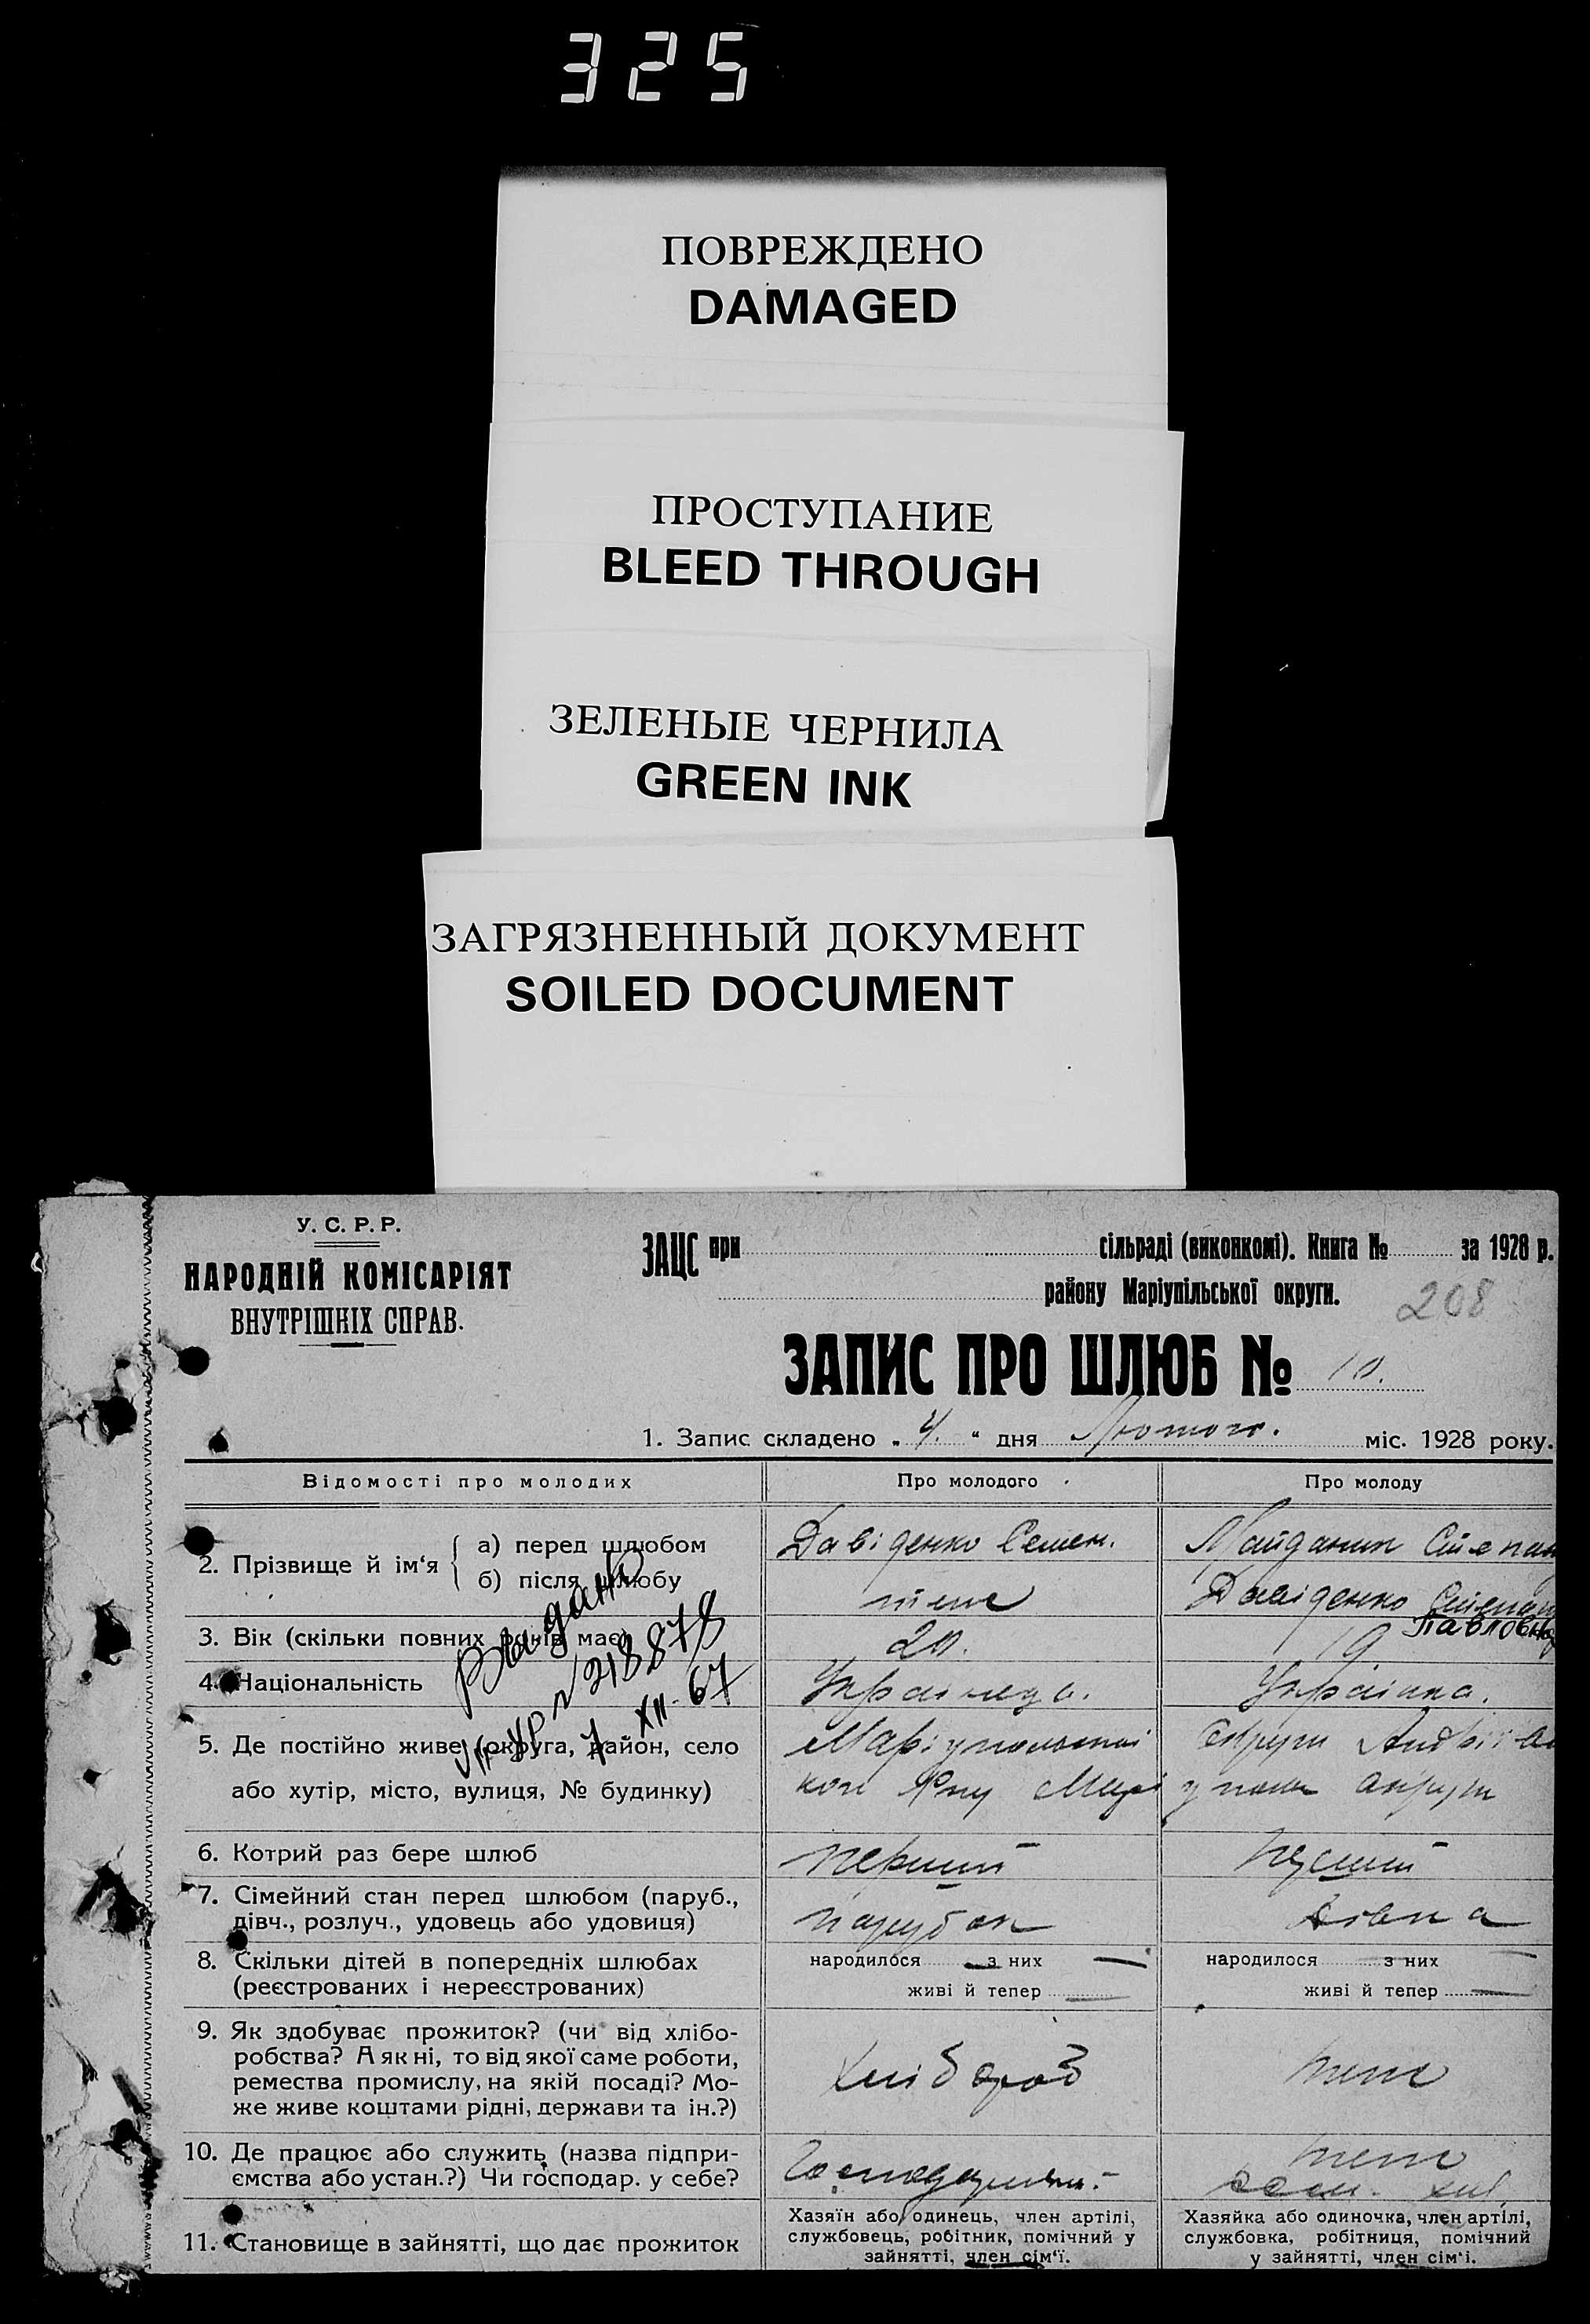 325
ПОВРЕЖДЕНО
DAMAGED
ПРОСТУПАНИЕ
BLEED THROUGH
ЗЕЛЕНЫЕ ЧЕРНИЛА
GREEN INK
ЗАГРЯЗНЕННЫЙ ДОКУМЕНТ
SOILED DOCUMENT
У. С. Р. Р.
НАРОДНІЙ КОМІСАРІЯТ
ВНУТРІШНІХ СПРАВ.
ЗАЦС при сільраді (виконкомі). Книга № за 1928 р.
району Маріупільської округи.
208
ЗАПИС ПРО ШЛЮБ № 10.
1. Запис складено „ 4. “ дня Лютого. міс. 1928 року.
Відомості про молодих Про молодого Про молоду
2. Прізвище й ім‘я
а) перед шлюбом Давіденко Семен. Майданик
б) після шлюбу теж Давіденко
Павловна
3. Вік (скільки повних років має) 20. 19
4. Національність Українець. Українка.
Выдано
№ 218878
7-XII-67
5. Де постійно живе (округа, район, село Маріупольської округи
або хутір, місто, вулиця, № будинку)
6. Котрий раз бере шлюб перший перший
7. Сімейний стан перед шлюбом (паруб., дівч., розлуч., удовець або удовиця) парубок дівка
8. Скільки дітей в попередніх шлюбах народилося з них народилося з них
(реєстрованих і нереєстрованих) живі й тепер живі й тепер
9. Як здобуває прожиток? (чи від хлібо-
робства? А як ні, то від якої саме роботи,
ремества промислу, на якій посаді? Мо-
же живе коштами рідні, держави та ін.?)
Хлібороб теж
10. Де працює або служить (назва підпри- теж
ємства або устан.?) Чи господар. у себе?
11. Становище в зайнятті, що дає прожиток
Хазяїн або одинець, член артілі,
службовець, робітник, помічний у
зайнятті, член сім‘ї.
Хазяйка або одиночка, член артілі,
службовка, робітниця, помічний
у зайнятті, член сім‘і.